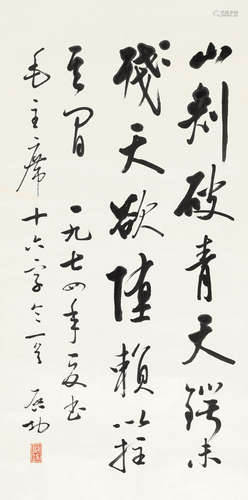 山刺破青天鍔未
殘天欲堕賴以拄
其間 一九七四年夏書
毛主席十六字令一首 启功